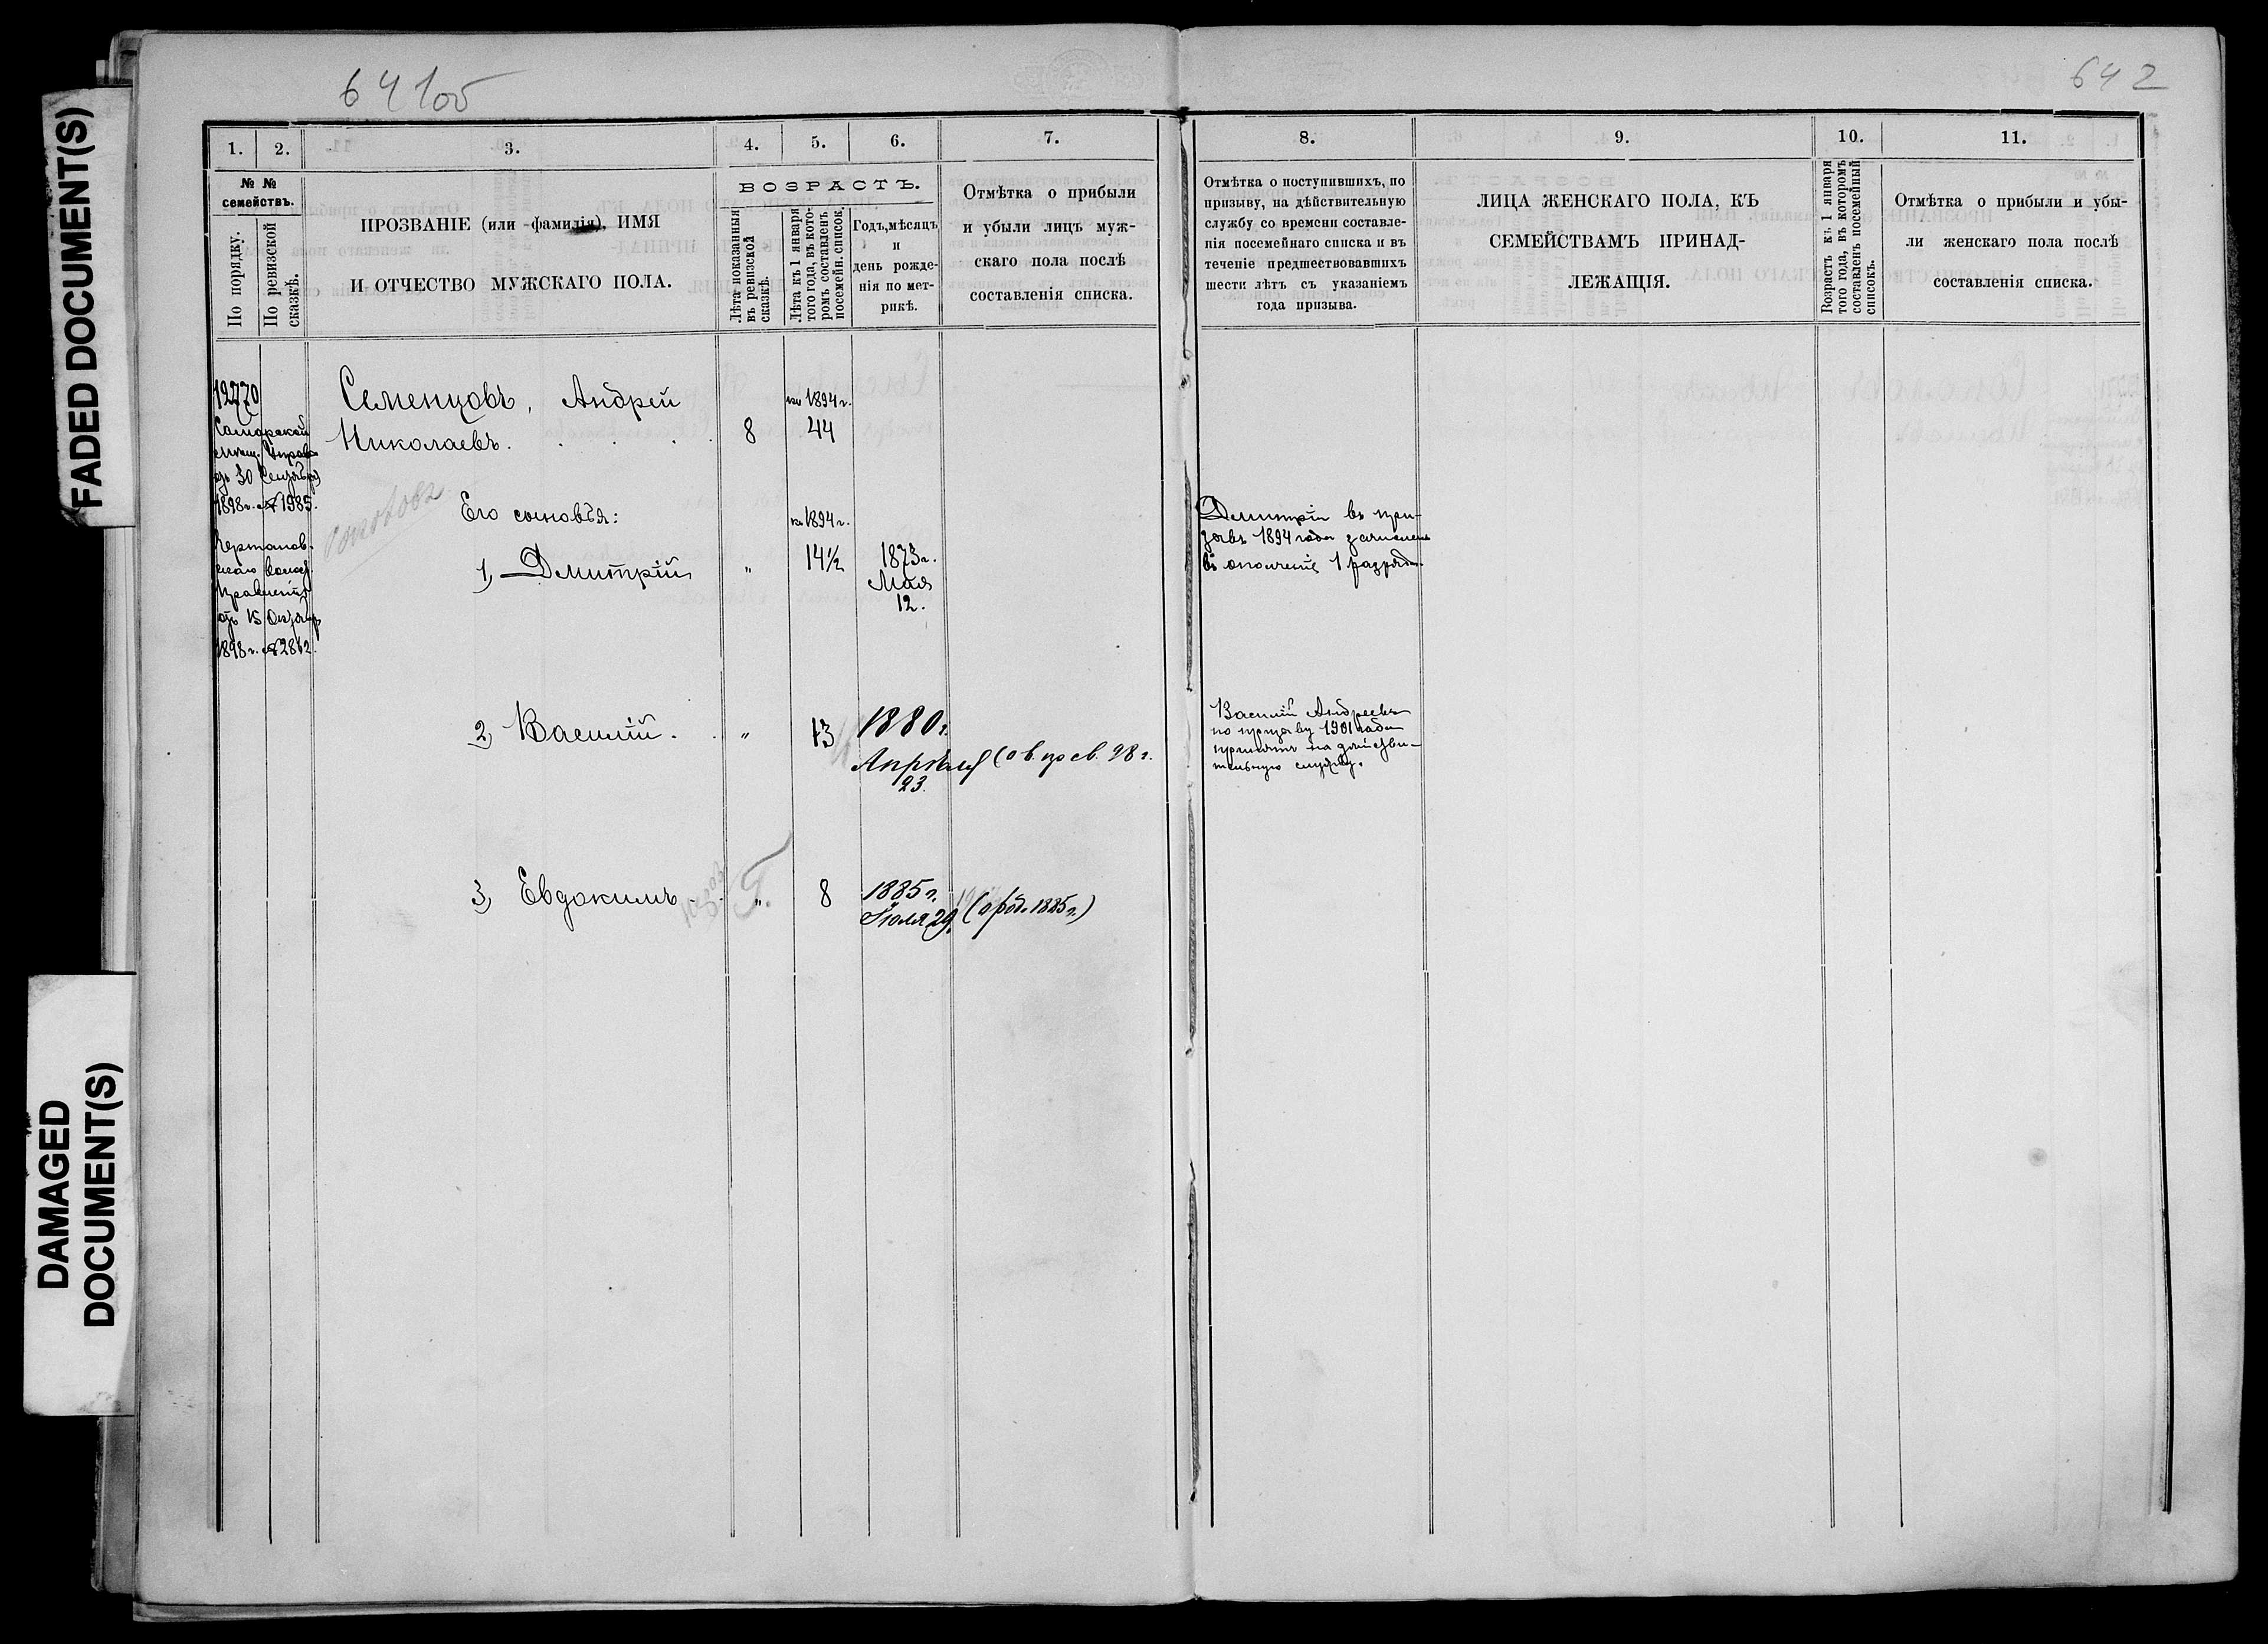 FADED DOCUMENT(S)
DAMAGED
DOCUMENT(S)
641об
642
1. 2. 3. 4. 5. 6. 7.
№ №
семействъ.
По порядку.
По ревизской
сказкѣ.
ПРОЗВАНІЕ (или фамилія), ИМЯ
И ОТЧЕСТВО МУЖСКАГО ПОЛА.
ВОЗРАСТЪ.
Лѣта показанныя
въ ревизской
сказкѣ.
Лѣта къ 1 января
того года, въ кото-
ромъ составленъ
посемейн. список.
Годъ, мѣсяцъ
и
день рожде-
нія по мет-
рикѣ.
Отмѣтка о прибыли
и убыли лицъ муж-
скаго пола послѣ
составленія списка.
12770
Самарской
мѣщ. Управы
отъ 30 Сентября
1898 г. № 1985.
волост.
Правленія
отъ 15 Октябр
1898 г. № 2812.
Семенцовъ, Андрей
Николаевъ. 8
къ 1894 г.
44
Его сыновья:
къ 1894 г.
1, Дмитрій " 14½ 1873 г.
Мая
12.
2, Василій. " 13 1880 г.
Апрѣля
23.
3, Евдокимъ " 8 1885 г.
Іюля 29. (о род. 1885 г.)
8. 9. 10. 11.
Отмѣтка о поступившихъ, по
призыву, на дѣйствительную
службу со времени составле-
нія посемейнаго списка и въ
теченіе предшествовавшихъ
шести лѣтъ съ указаніемъ
года призыва.
ЛИЦА ЖЕНСКАГО ПОЛА, КЪ
СЕМЕЙСТВАМЪ ПРИНАД-
ЛЕЖАЩІЯ.
Возрастъ къ 1 января
того года, въ которомъ
составленъ посемейный
списокъ.
Отмѣтка о прибыли и убы-
ли женскаго пола послѣ
составленія списка.
Дмитрій въ при-
зывъ 1894 года зачисленъ
въ ополченіе 1 разряда.
Василій Андреевъ
по призыву 1901 года
принятъ на дѣйстви-
тельную службу.